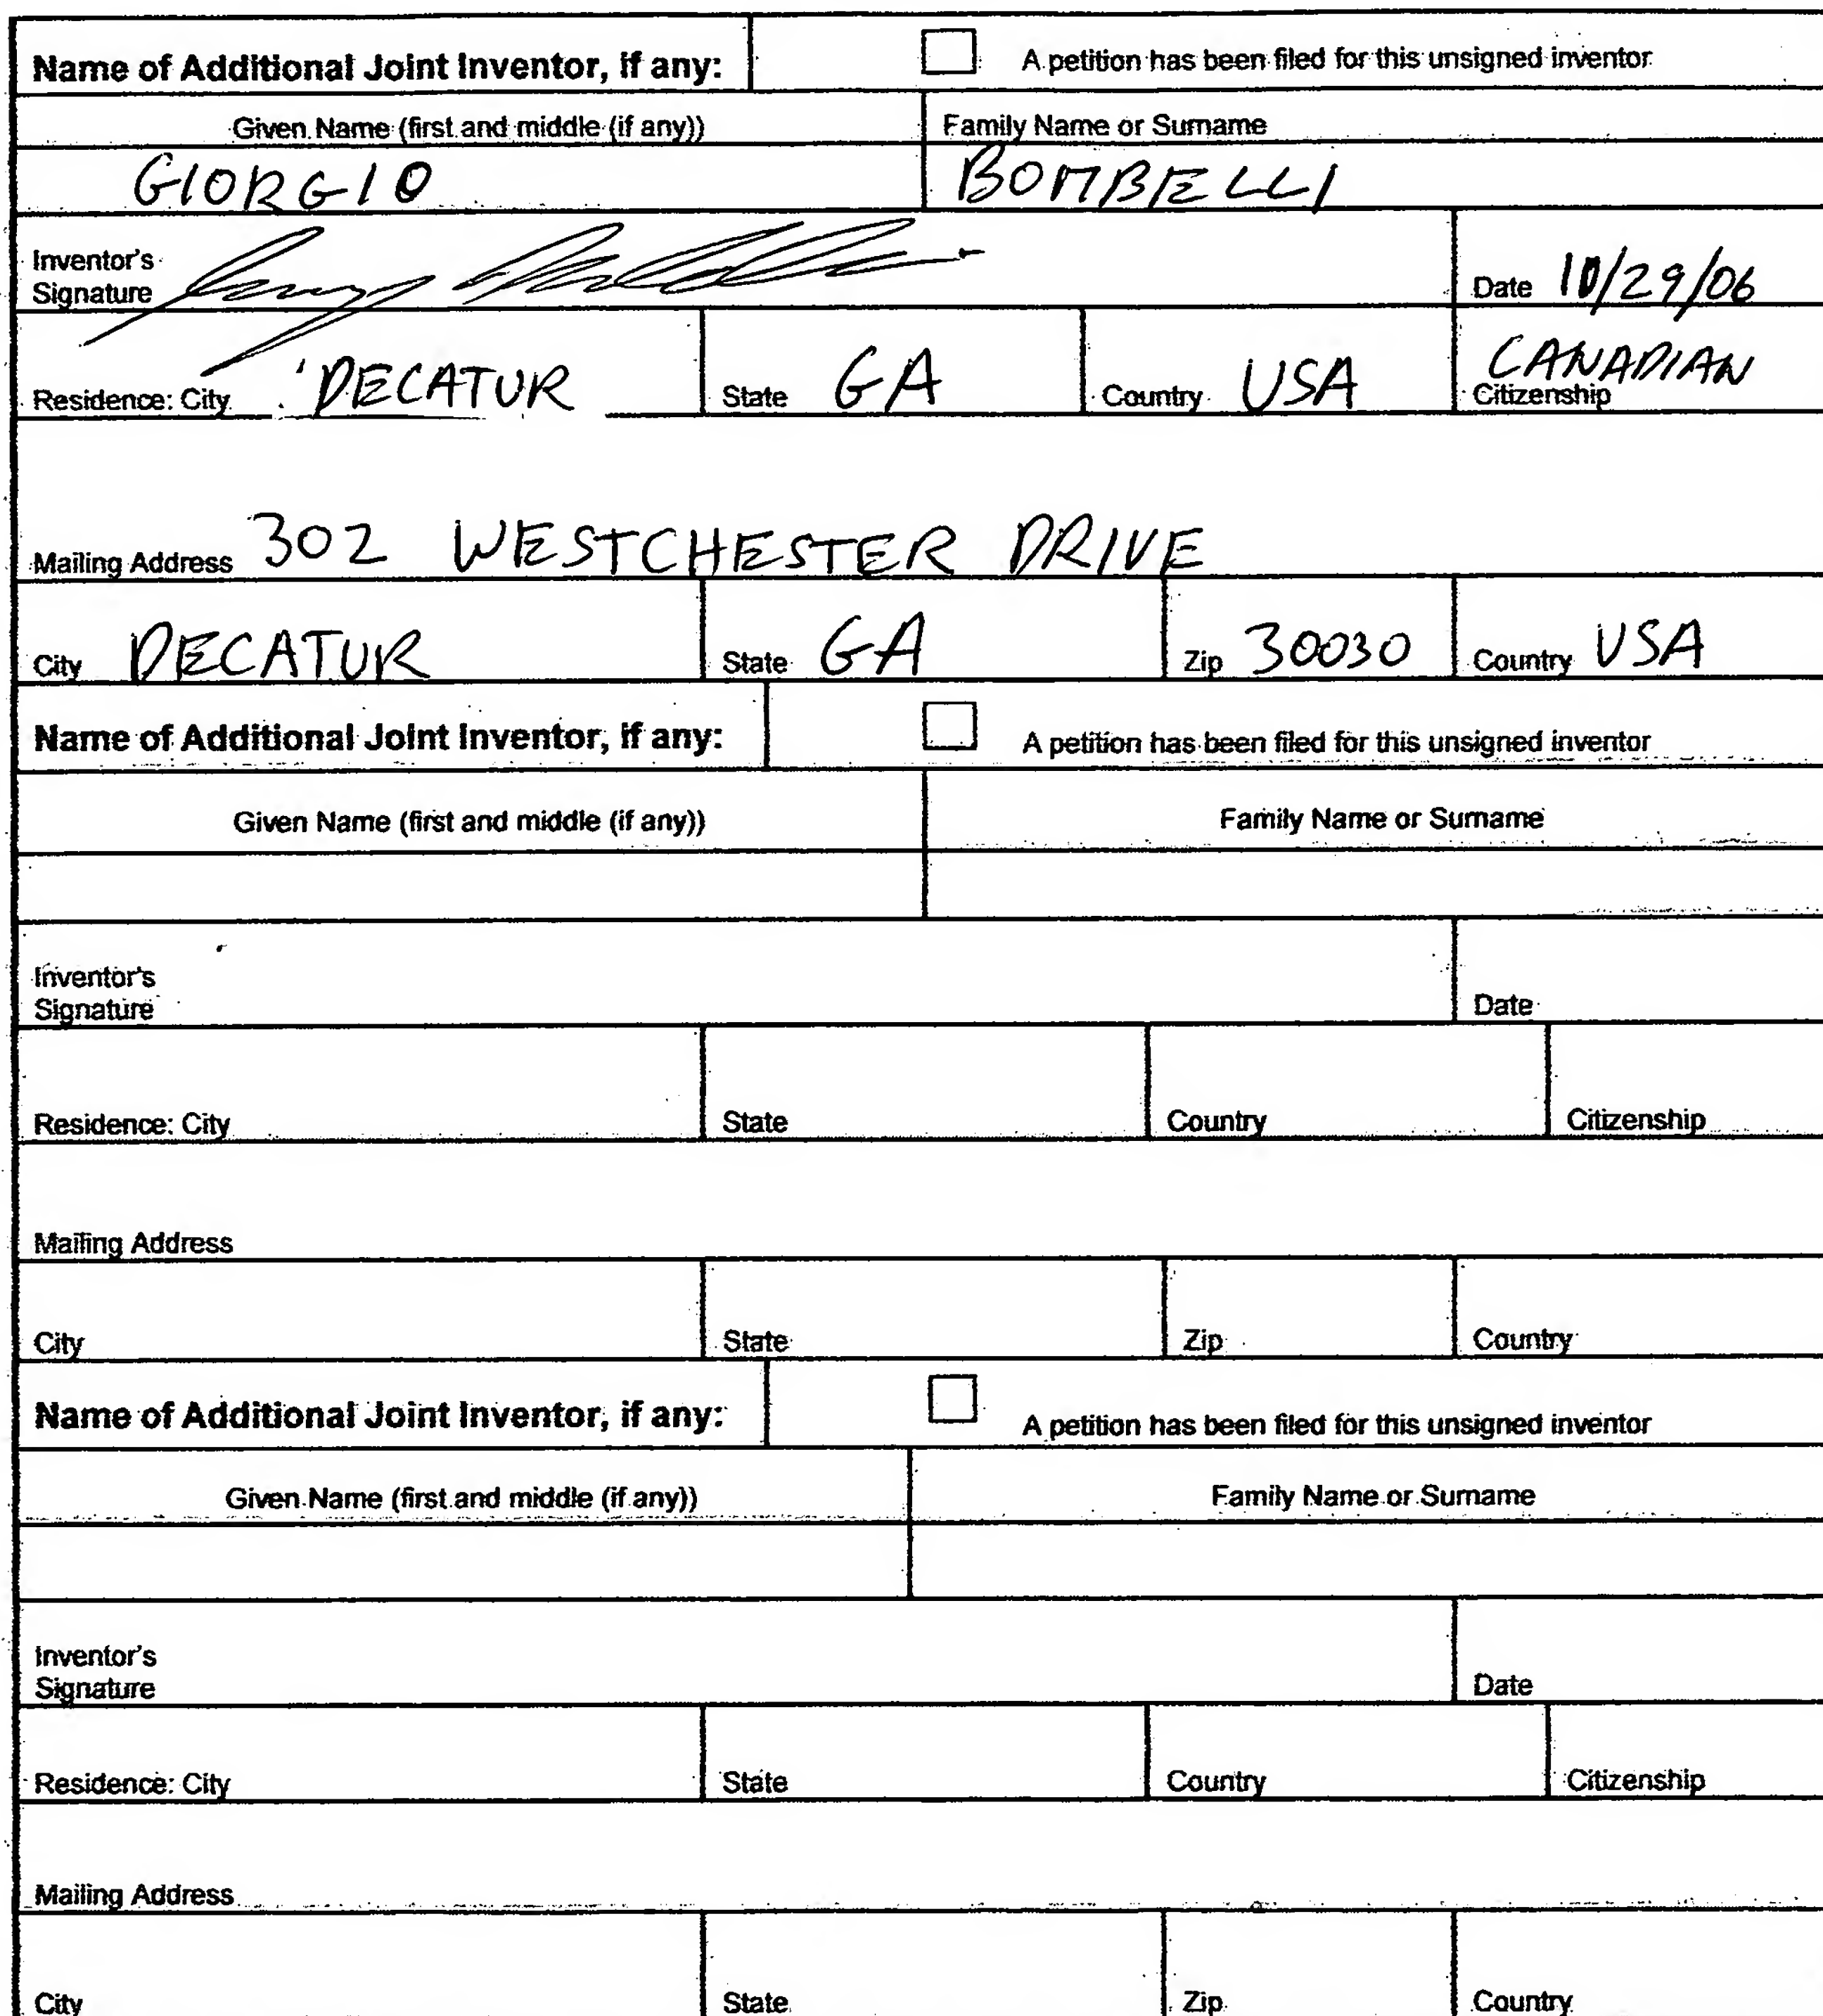 Name of Additional Joint Inventor, if any: A petition has been filed for this unsigned inventor
Given Name (first and middle (if any)) Family Name or Surname
GIORGIO BOMBELLI
Inventor's
Signature Date 10/29/06
Residence: City DECATUR State GA Country USA CANADIAN Citizenship
Mailing Address 302 WESTCHESTER DRIVE
City DECATUR State GA Zip 30030 Country USA
Name of Additional Joint Inventor, if any: A petition has been filed for this unsigned inventor
Given Name (first and middle (if any)) Family Name or Surname
Inventor's
Signature Date
Residence: City State Country Citizenship
Mailing Address
City State Zip Country
Name of Additional Joint Inventor, if any: A petition has been filed for this unsigned inventor
Given Name (first and middle (if any)) Family Name or Surname
Inventor's
Signature Date
Residence: City State Country Citizenship
Mailing Address
City State Zip Country